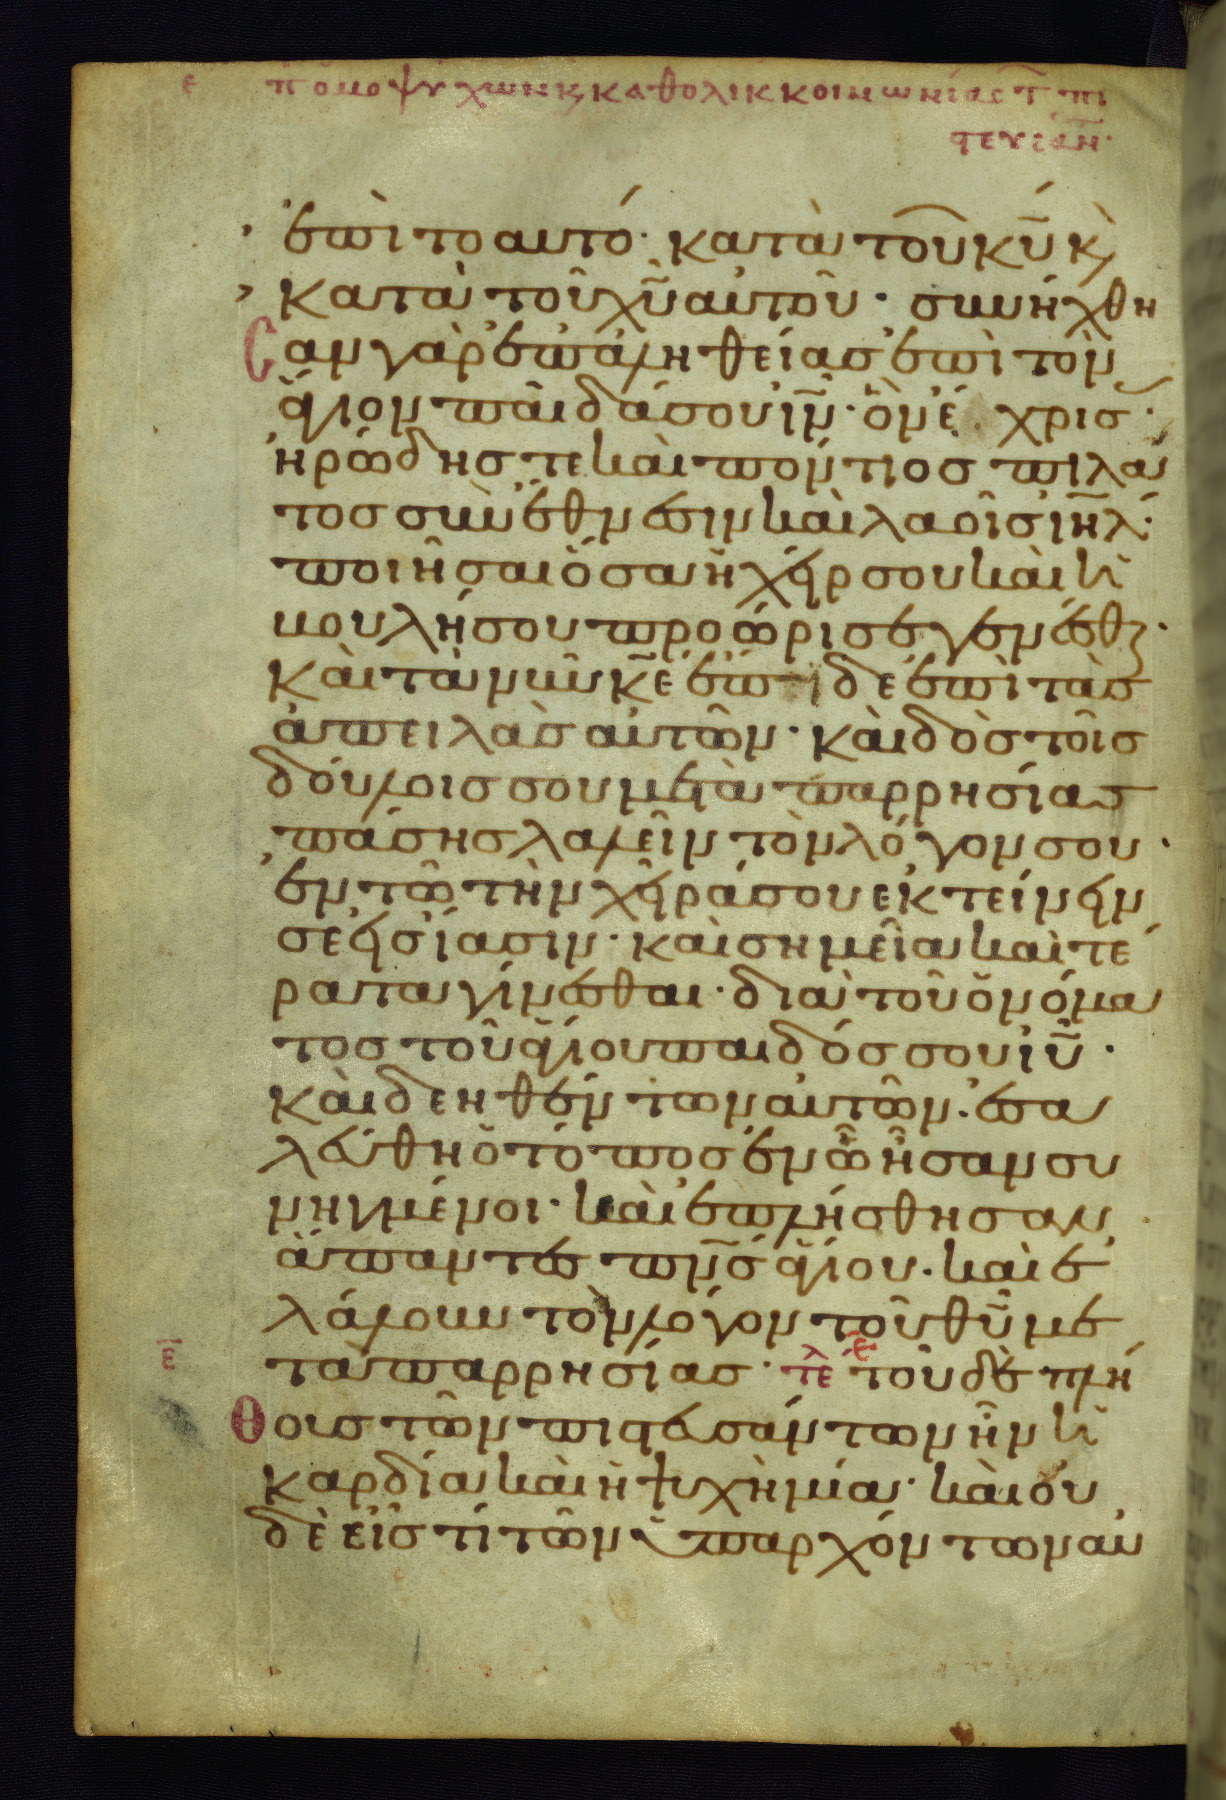 ε π ομοψυχων κ, καθολικ κοινωνίας τ πι
ϛευσαν·
ἐπὶ το αυτό· κατὰ τοῦ κῡ κ,
κατὰ τοῦ χῡ αὐτοῦ· συνήχθη
σαν γὰρ ἐπ ἀληθείας ἐπὶ τὸν
ἅγιον παῖδά σου ἰν̄· ὃν ἔχρισ·
ἡρώδης τε καὶ πόντιος πιλα
τος σὺν ἔθνεσιν καὶ λαοῖς ἰηλ̄·
ποιῆσαι ὅσα ἡ χείρ σου καὶ ἡ
βουλή σου προώρισε γενέσθαι·
καὶ τὰ νῦν κε̄ ἔπιδε ἐπὶ τὰς
ἀπειλὰς αὐτῶν· καὶ δὸς τοῖς
δούλοις σου μετὰ παρρησίας
πάσης λαλεῖν τὸν λόγον σου·
ἐν τῶ τὴν χεῖρά σου ἐκτείνειν
σε εἰς ἴασιν· καὶ σημεῖα καὶ τέ
ρατα γίνεσθαι· διὰ τοῦ ὀνόμα
τος τοῦ ἁγίου παιδός σου ἰῡ·
καὶ δεηθέντων αὐτῶν· ἐσα
λεύθη ὁ τόπος ἐν ὧ ἦσαν συ
νηγμένοι· καὶ ἐπλήσθησαν
ἅπαντες πν̄ς ἁγίου· καὶ ἐ
λάλουν τὸν λόγον τοῦ θῡ με
τὰ παρρησίας· τελ ε τοῦ δὲ πλή
ε̄
θους τῶν πιϛευσάντων ἦν ἡ
καρδία καὶ ἡ ψυχὴ μία· καὶ οὐ
δὲ εἷς τὶ τῶν ὑπαρχόντων αὐ